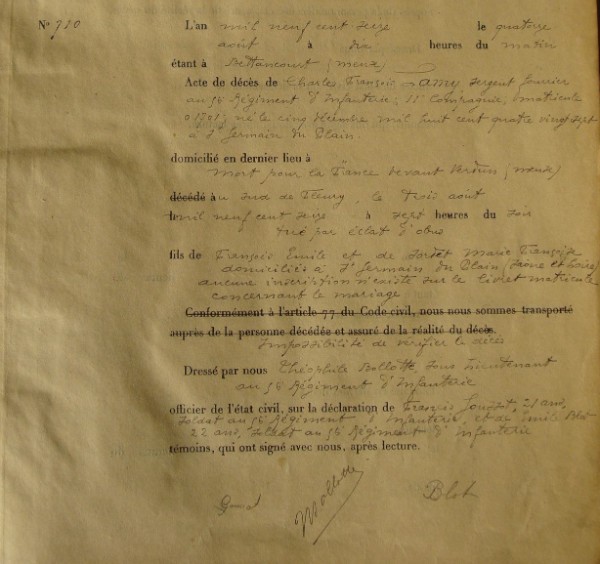 N° 780 L'an mil neuf cent seize le quatorze
août à dix heures du matin
étant à Bettancourt (meuse)
Acte de décès de Charles, François Lamy sergent fourrier
au 56 Régiment d'Infanterie, 11e Compagnie, matricule
né le cinq décembre mil huit cent quatre vingt sept
à St Germain du Plain.
domicilié en dernier lieu à
mort pour la France devant Verdun (meuse)
décédé au sud de Fleury, le trois août
mil neuf cent seize à sept heures du soir
tué par éclat d'obus
fils de François Emile et de Marie Françoise
domiciliés à St Germain du Plain (Saône et Loire)
aucune inscription n'existe sur le livret matricule
concernant le mariage
Conformément à l'article 77 du Code civil, nous nous sommes transporté
auprès de la personne décédée et assuré de la réalité du décès.
Impossibilité de vérifier le décès
Dressé par nous Théophile sous lieutenant
au 56 Régiment d'Infanterie
officier de l'état civil, sur la déclaration de François ans,
soldat au 56 Régiment d'Infanterie, et de Emile Blot
22 ans, soldat au 56 Régiment d'Infanterie
témoins, qui ont signé avec nous, après lecture.
Blot